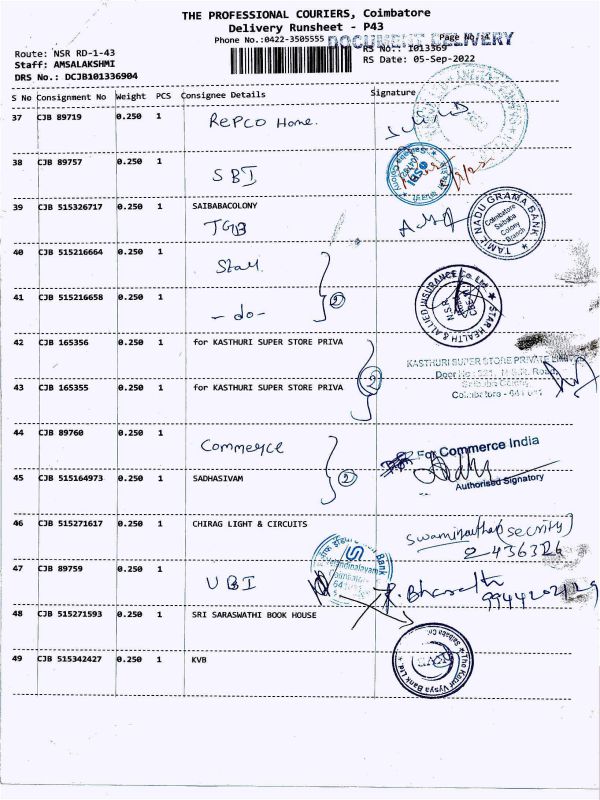 THE PROFESSIONAL COURIERS, Coimbatore
Delivery Runsheet - P43
Phone No.:0422-3505555
DOCUMENT DELIVERY
Page No
Route: NSR RD-1-43
RS No.: 1013369
Staff: AMSALAKSHMI
RS Date: 05-Sep-2022
DRS No.: DCJB101336904
S No Consignment No Weight PCS Consignee Details Signature
37 CJB 89719 0.250 1 Repco Home.
38 CJB 89757 0.250 1 SBI
39 CJB 515326717 0.250 1 SAIBABACOLONY
TGB
TAMIL NADU GRAMA BANK
Coimbatore
Saibaba
Colony
Branch
40 CJB 515216664 0.250 1 Star.
41 CJB 515216658 0.250 1 -do-
2
STAR HEALTH & ALLIED INSURANCE Co. Ltd.
N.S.R.
42 CJB 165356 0.250 1 for KASTHURI SUPER STORE PRIVA
43 CJB 165355 0.250 1 for KASTHURI SUPER STORE PRIVA
2
KASTHURI SUPER STORE PRIVATE LIMITED
Door No: 321, N.S.R. Road,
Saibaba Colony,
Coimbatore - 641 011
44 CJB 89760 0.250 1 Commerce
For Commerce India
45 CJB 515164973 0.250 1 SADHASIVAM
2
Authorised Signatory
46 CJB 515271617 0.250 1 CHIRAG LIGHT & CIRCUITS
Swaminathan (security)
2436326
47 CJB 89759 0.250 1 UBI
R. Bharath
48 CJB 515271593 0.250 1 SRI SARASWATHI BOOK HOUSE
49 CJB 515342427 0.250 1 KVB
The Karur Vysya Bank Ltd.